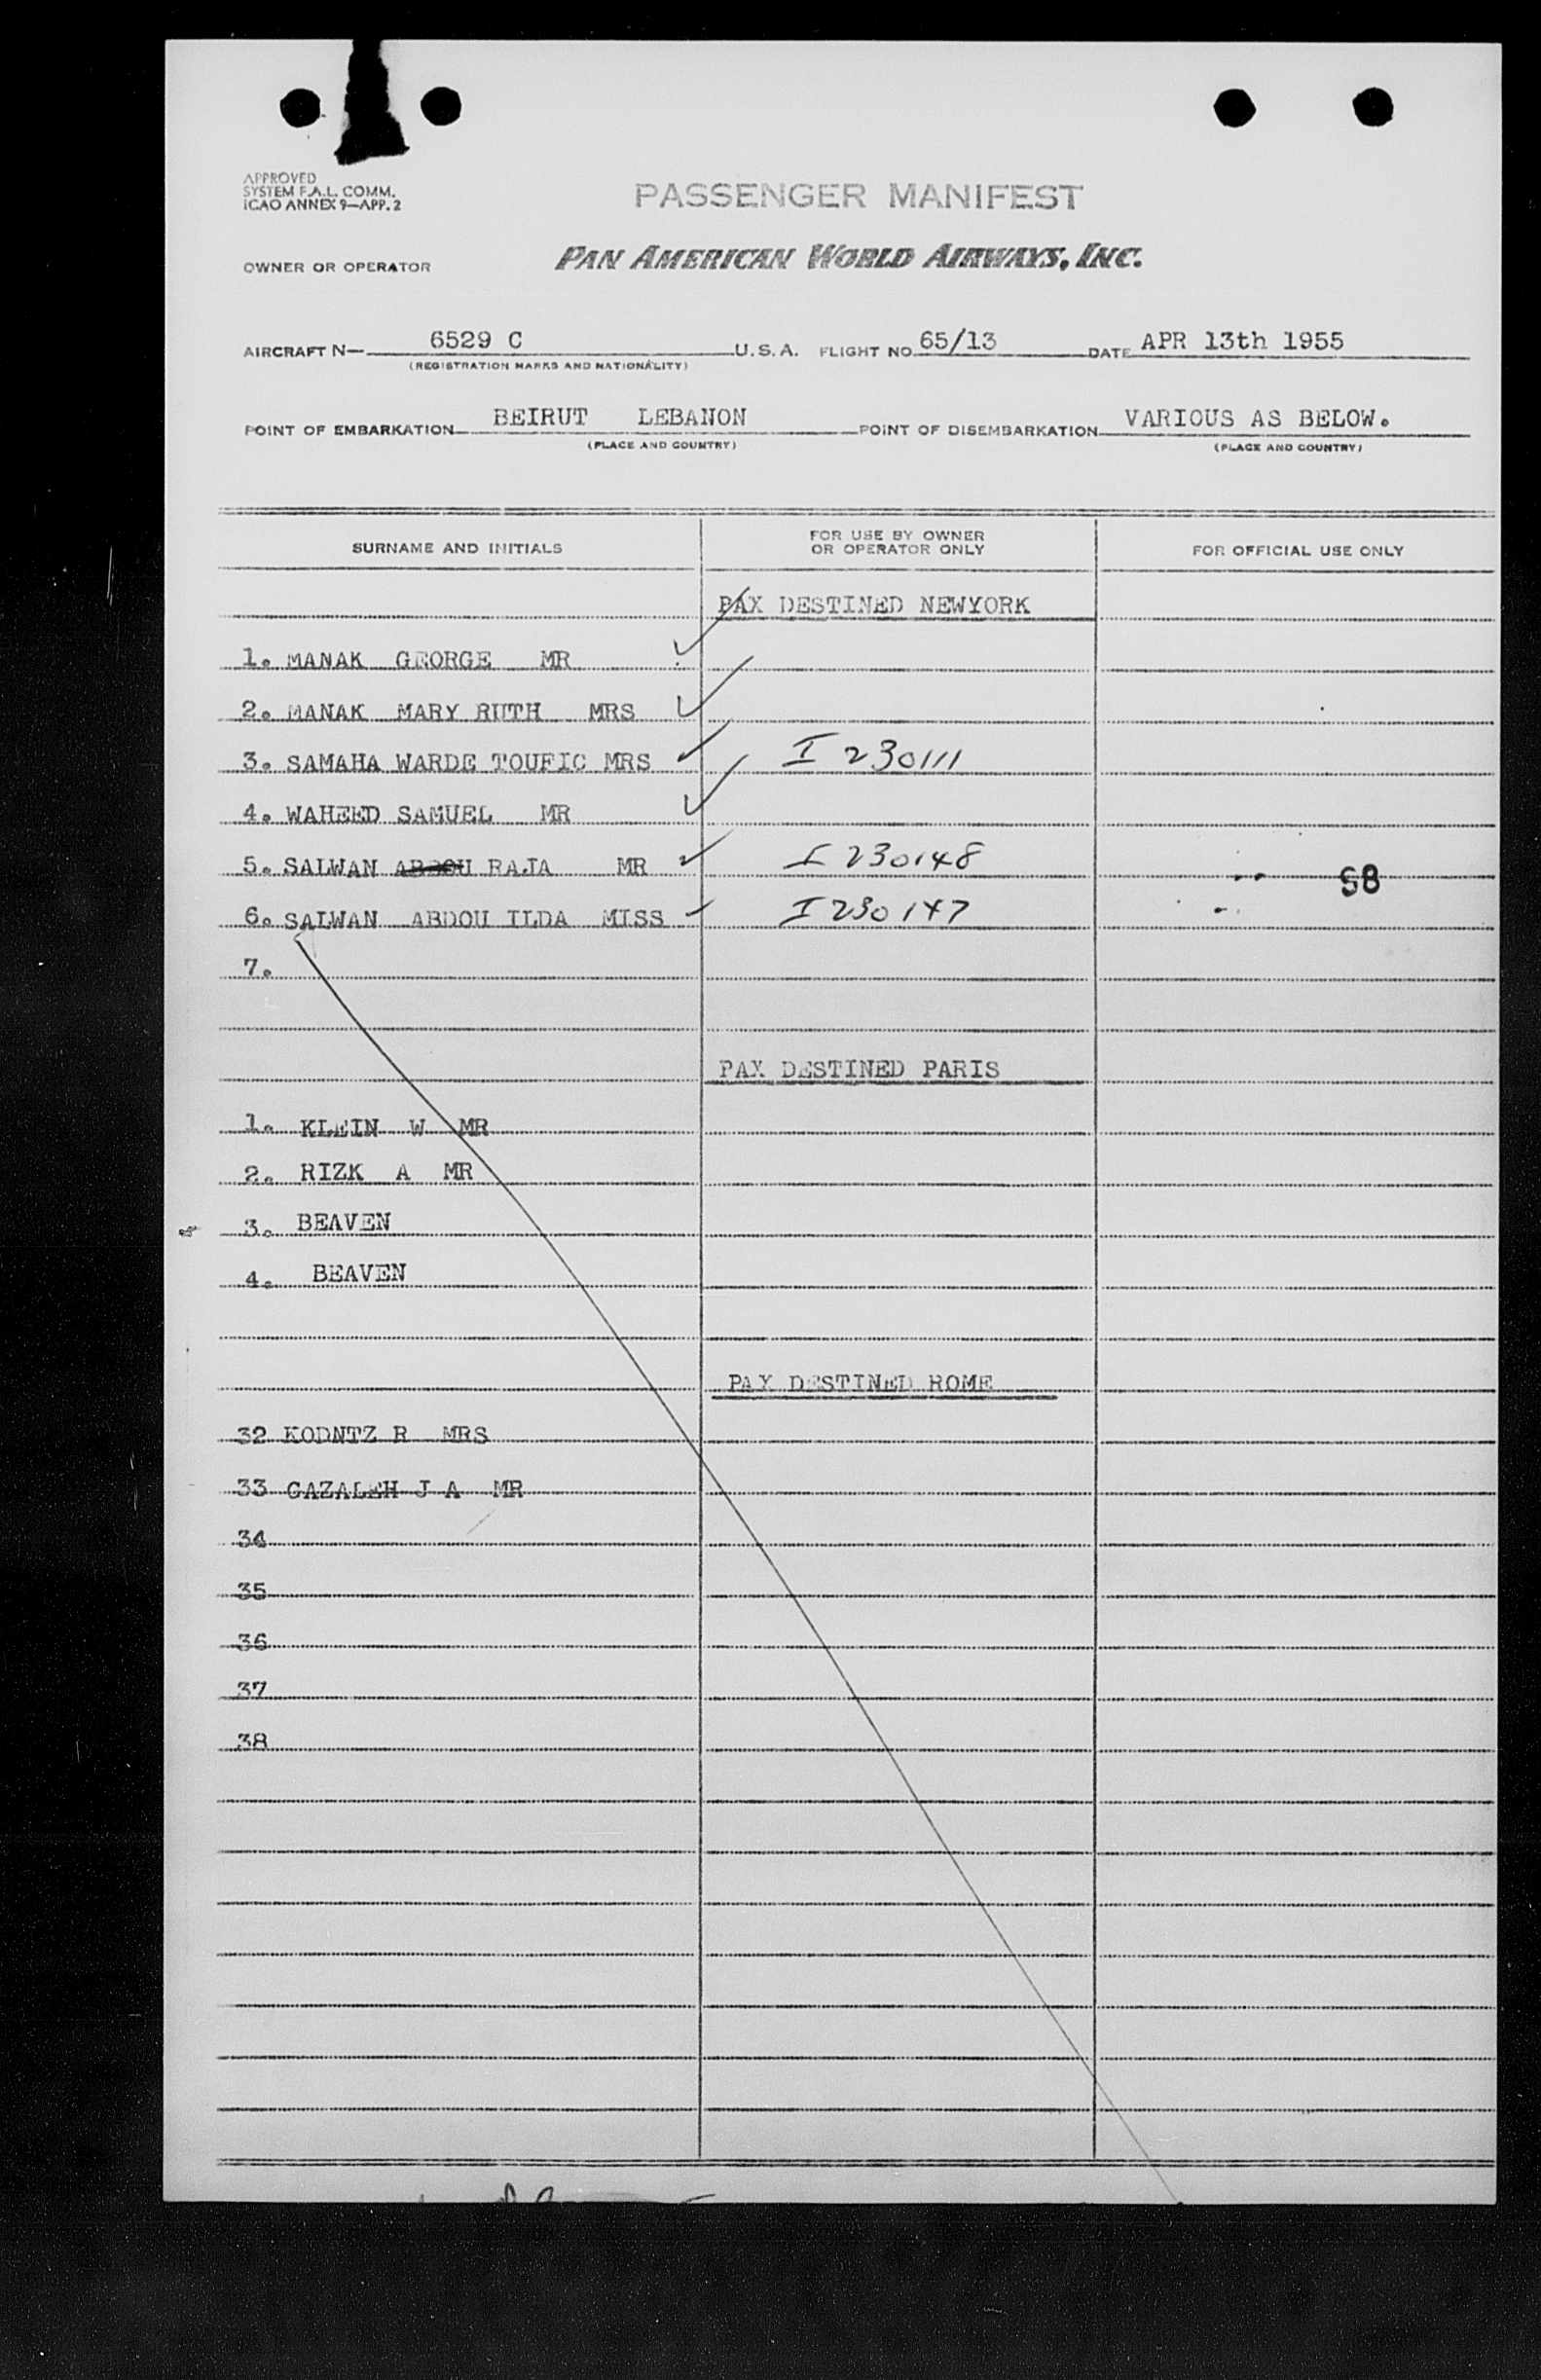 APPROVED
SYSTEM F.A.L. COMM.
ICAO ANNEX 9—APP. 2
PASSENGER MANIFEST
OWNER OR OPERATOR PAN AMERICAN WORLD AIRWAYS, INC.
AIRCRAFT N— 6529 C U. S. A. FLIGHT NO. 65/13 DATE APR 13th 1955
(REGISTRATION MARKS AND NATIONALITY)
POINT OF EMBARKATION BEIRUT LEBANON POINT OF DISEMBARKATION VARIOUS AS BELOW.
(PLACE AND COUNTRY) (PLACE AND COUNTRY)
SURNAME AND INITIALS FOR USE BY OWNER OR OPERATOR ONLY FOR OFFICIAL USE ONLY
PAX DESTINED NEWYORK
1. MANAK GEORGE MR
2. MANAK MARY RUTH MRS
3. SAMAHA WARDE TOUFIC MRS I 230111
4. WAHEED SAMUEL MR
5. SALWAN ABDOU RAJA MR I 230148
6. SALWAN ABDOU ILDA MISS I 230147
7.
PAX DESTINED PARIS
1. KLEIN W MR
2. RIZK A MR
3. BEAVEN
4. BEAVEN
PAX DESTINED ROME
32 KODNTZ R MRS
33 GAZALEH J A MR
34
35
36
37
38